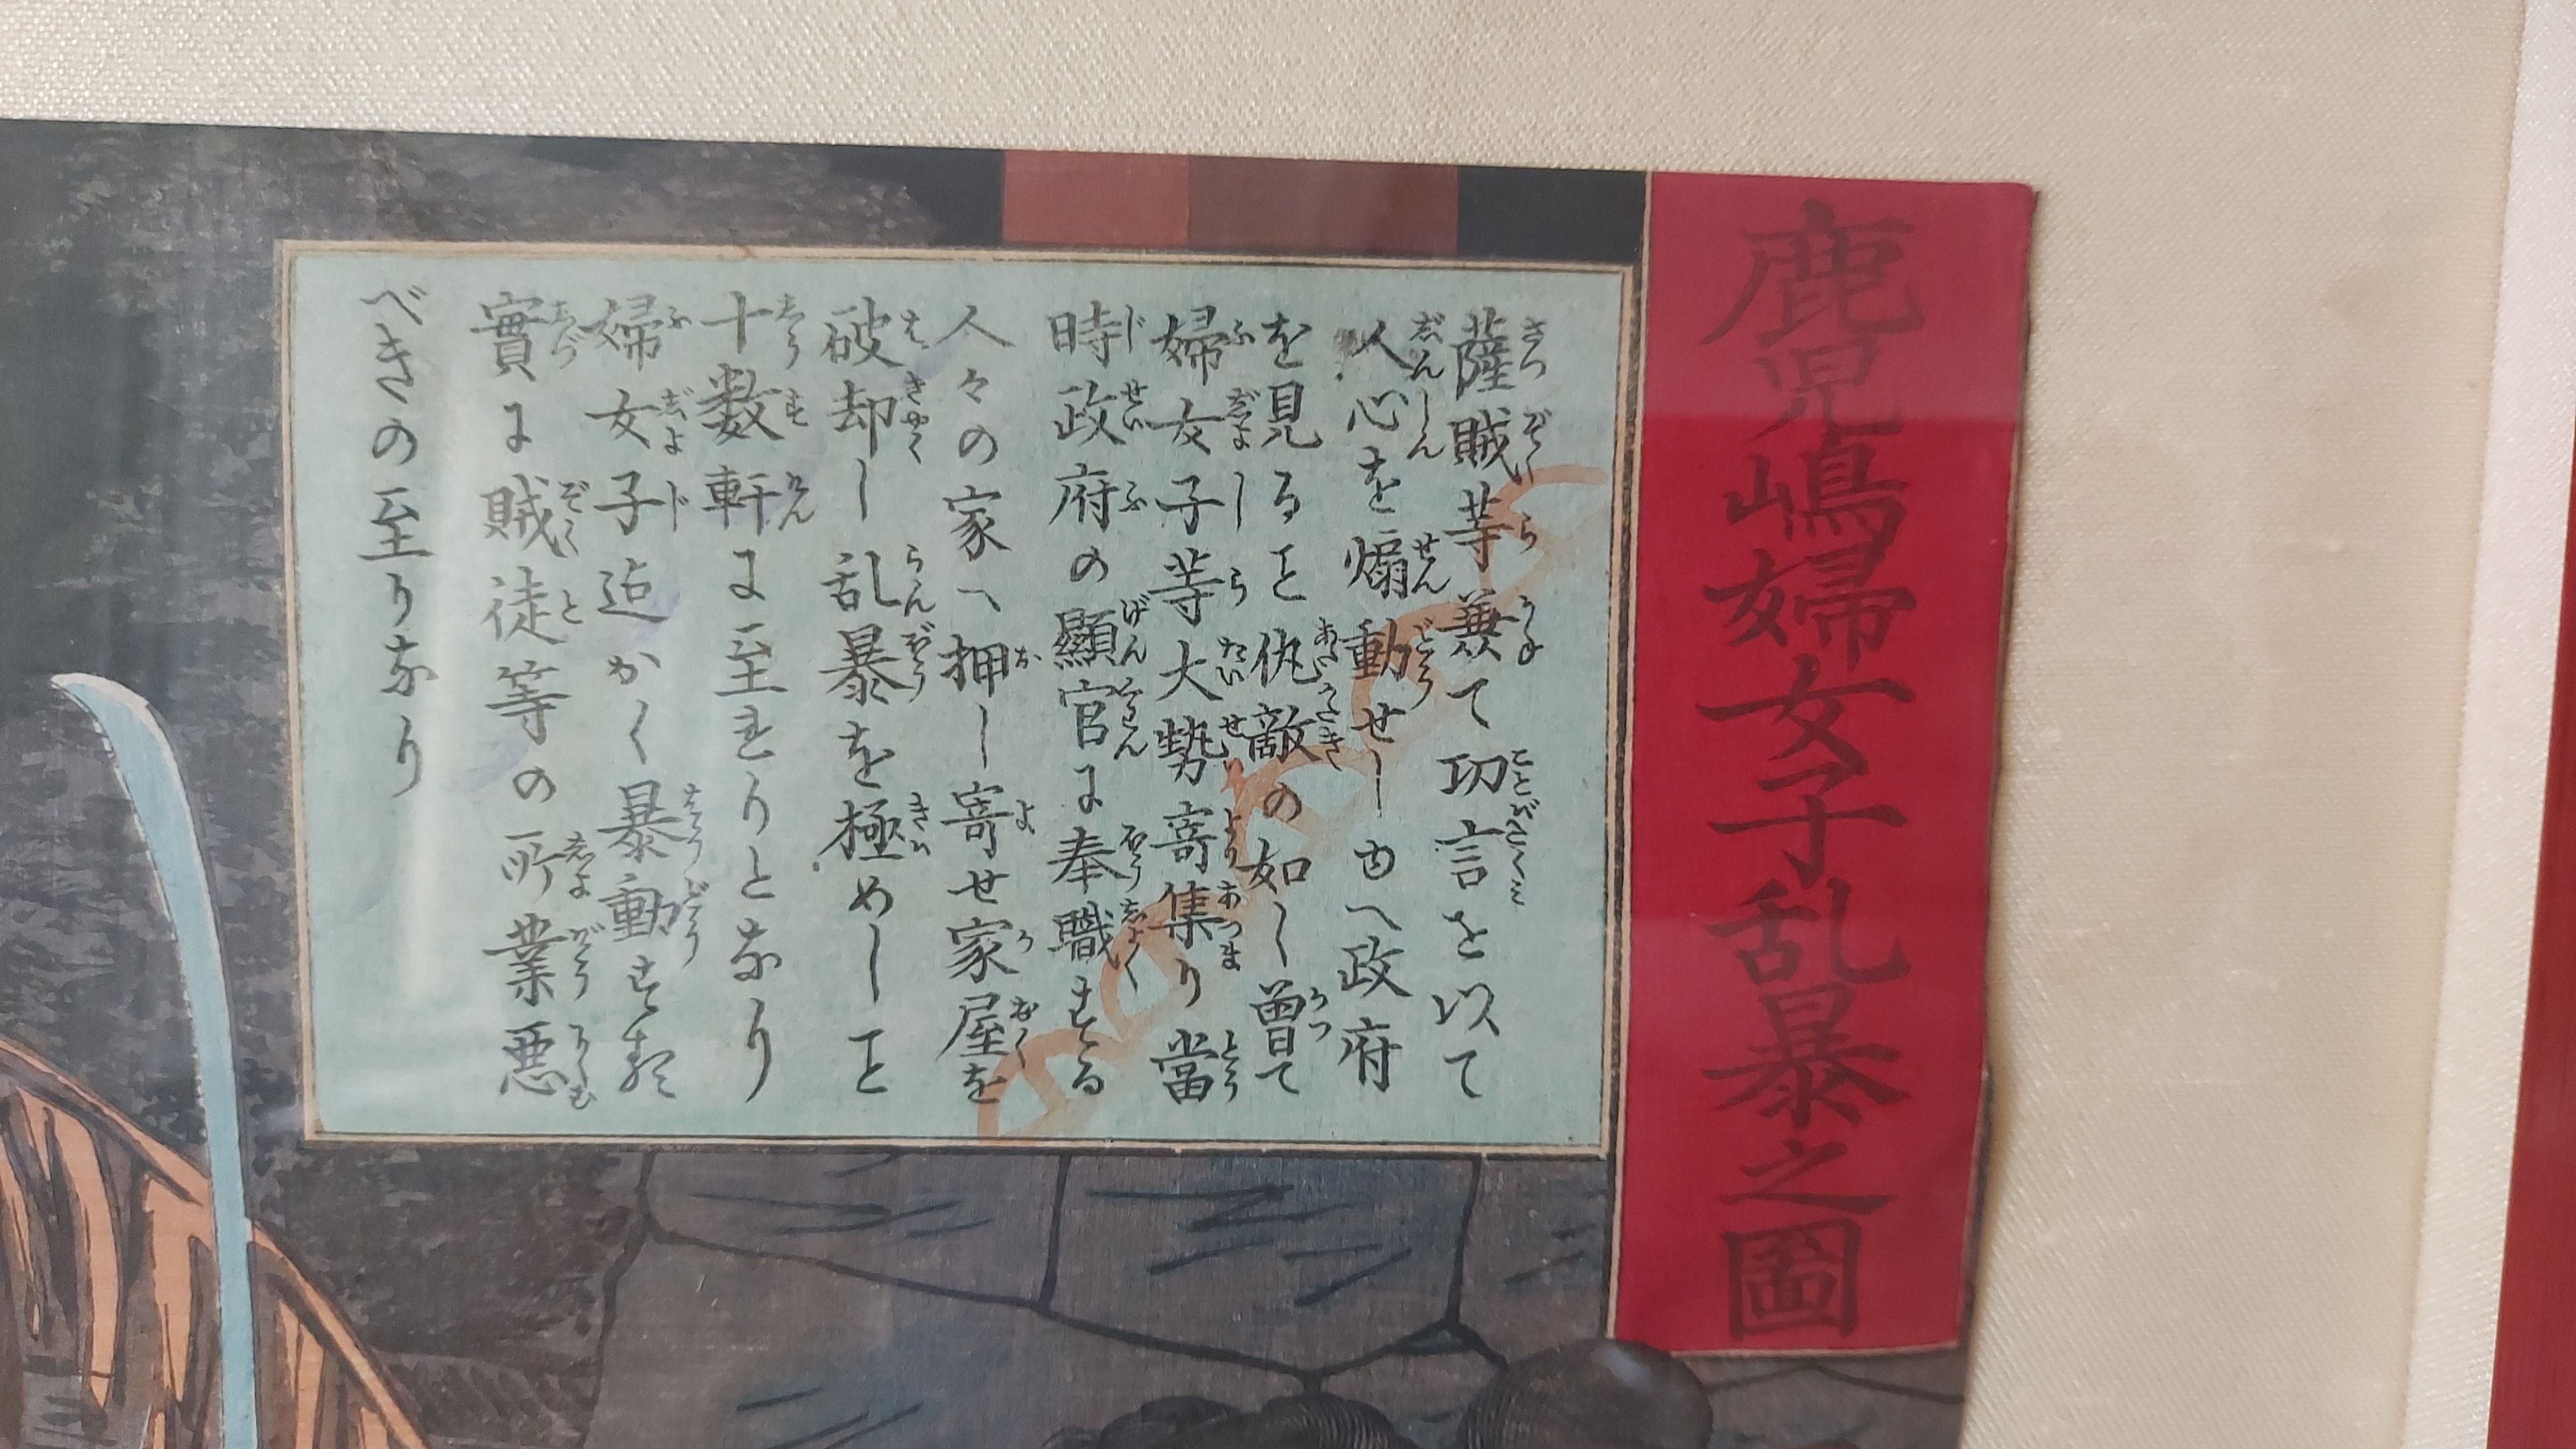 鹿児嶋婦女子乱暴之圖
薩賊等兼て功言を以て
人心を煽動せしゆへ政府
を見ること仇敵の如し曽て
婦女子等大勢寄集り當
時政府の顯官に奉職する
人々の家へ押し寄せ家屋を
破却し乱暴を極めしこと
十数軒に至れりとなり
婦女子迠かく暴動す
實に賊徒等の所業悪
べきの至りなり